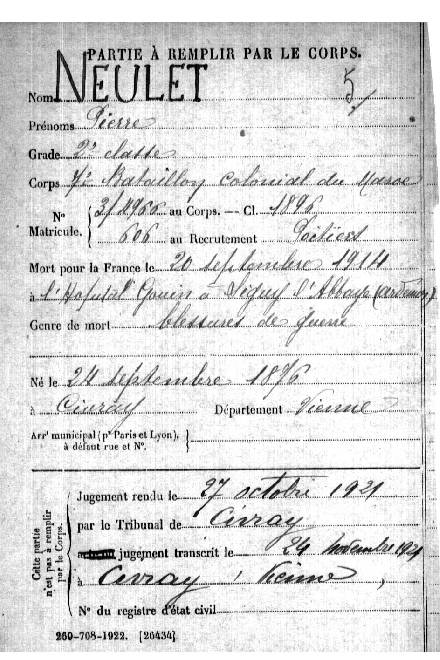 PARTIE À REMPLIR PAR LE CORPS.
Nom NEULET 5/
Prénoms Pierre
Grade 2e classe
Corps 7e Bataillon Colonial du Maroc
N° Matricule. { au Corps. — Cl. 1896
606 au Recrutement Poitiers
Mort pour la France le 20 septembre 1914
à l'Hopital Gouin à Signy l'Abbaye (Ardennes)
Genre de mort blessures de guerre
Né le 24 septembre 1876
à Civray Département Vienne
Arrt municipal (pr Paris et Lyon), à défaut rue et N°. }
Cette partie n'est pas à remplir par le Corps.
Jugement rendu le 27 octobre 1921
par le Tribunal de Civray
jugement transcrit le 29 novembre 1921
à Civray, Vienne,
N° du registre d'état civil
260-708-1922. [26434]